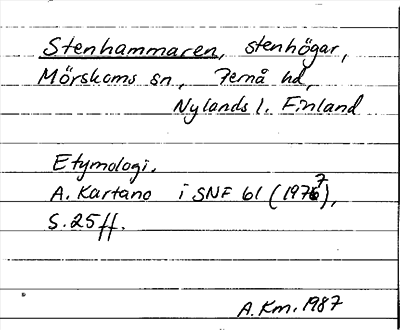 Stenhammaren, stenhögar,
Mörskoms sn, Pernå hd,
Nylands l. Finland
Etymologi.
A. Kartano i SNF 61 (1977),
s. 25 ff.
A. Km. 1987